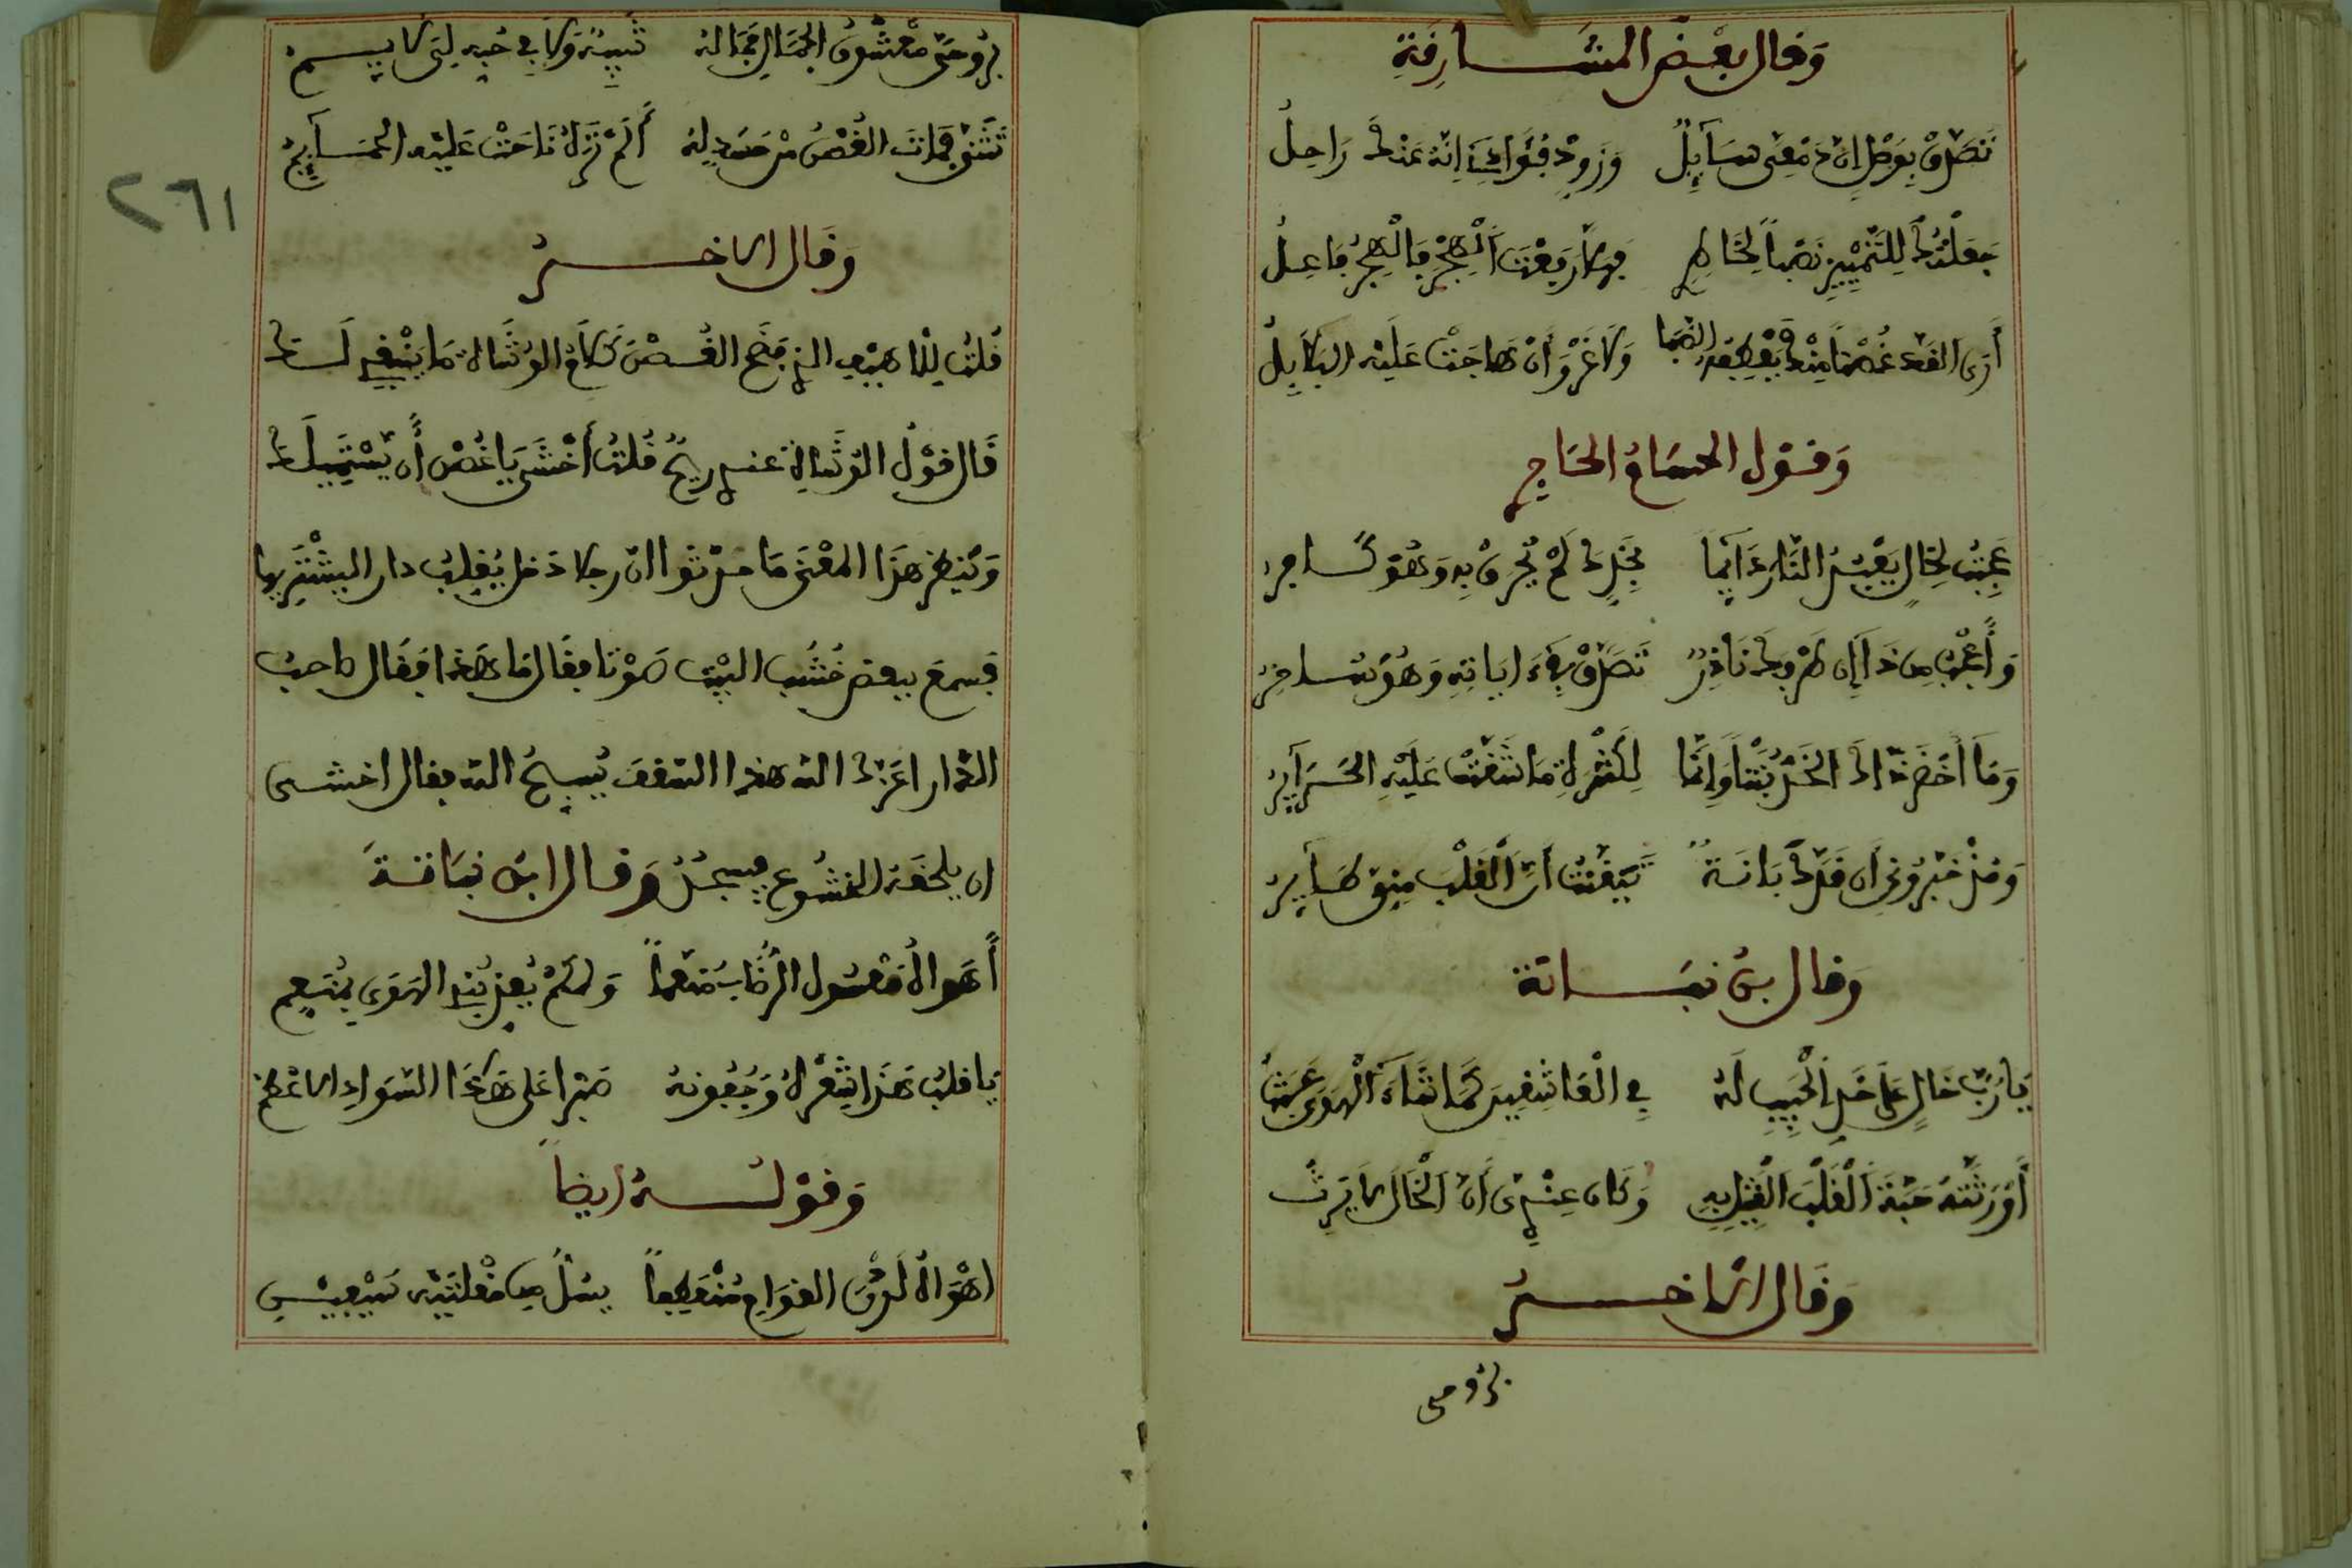 وَقال بعْض المشَارِقةِ
تَصَدَّقْ بِوَصْلٍ انّ دَمْعِى سَآيِلٌ وَزَوِّدْ فُؤَادِى انّهُ عَنْكَ رَاحِلُ
جَعَلْتُكَ لِلتَّمْيِيزِ نَصْباً لِخَاطِرِ فهلّا رَفَعْتَ الْهجْرَ فَالْهجْرُ فَاعِلُ
أَرَى القدّ غُصْناً مِنْكَ يَعْطِفه الصّبَا وَلَا غَرْوَ أنْ هَاجَتْ عَلَيْهِ البَلَابِلُ
وَقول الحسَامُ الحَاجِرِي
عَجِبْتُ لِخَالٍ يَعْبُدُ النَّارَ دَآيِمًا بِخَدِّكَ لَمْ يُحْرَقْ بِهِ وَهُوَ كَافِرُ
وَأَعْجَبُ مِن ذَا إن طَرْفكَ نَاذِرٌ تَصَدَّقَ بهِ ءَايَاتِهِ وَهُوَ سَاحِرُ
وَمَا اخْضَرَّ ذَاكَ الخَدُّ نَبْتاً وَإِنَّمَا لِكَثْرَةِ مَا شُقَّتْ عَلَيْهِ الْمَرَآيِرُ
وَمُذْ خَبَّرُونِى أن قَدَّكَ بَانَةٌ تَيَقَّنْتُ أنّ الْقَلْبَ مِنِّى طَآيِرُ
وَقال بن نبَاتة
يَا رُبَّ خَالٍ عَلَى خَدِّ الْحَبِيبِ لَهُ فِي الْعَاشِقِينَ كَمَا شَاءَ الْهَوَى عَبَثُ
أَوْرَثتهُ حَبَّةَ الْقَلْبِ الْقَتِيلِ بِهِ وَكَان عِنْدِى أنّ الْخَالَ لَا يَرِثُ
وَقَال الآخرُ
بِرُوحِي
بِرُوحِىَ مَعْشُوقُ الجَمَالِ فمَا لهُ شَبِيهٌ وَلَا فِي حُبِّهِ لِىَ لَايِمُ
تَثَنَّى فمَاتَ الغُصْنُ مِنْ حَسَدٍ لهُ أَلَمْ تَرَهُ نَاحَتْ عَلَيْهِ الحَمَآيِمُ
وَقَال الاخرُ
قُلتُ لِلْاهيفِ الذى فضَحَ الغُصْنَ كَلَامُ الوُشَاةِ مَا يَنْبَغِى لَكَ
قَال قوْلُ الوُشَاةِ عندى رِيحٌ قُلتُ أَخْشَى يَا غُصْن أَن يَسْتَمِيلَكَ
وَيَنظر هَذَا المعْنَى مَا حدّثوا ان رجلا دَخل يُقلِبُ دار اليشْتَرِيها
فسمعَ ببعض خُشُب البيْت صوْتا فقال مَا هَذا فقال صاحبُ
الدّار اعزّكَ الله هذا السّقف يُسبحُ الله فقال اخشى
ان يلحقه الخشُوع فيسجُدُ وَقال ابن نبَاتةَ
أَهواهُ معْسُول الرُّضاب مُنَعماً وَلكَمْ يُعذّبُنِى الهَوَى بمُنَعمِ
يَا قلبُ هَذَا شعْرهُ وَجُفُونهُ صَبْرا عَلى هَذَا السّوَادِ الاعْظَم
وَقوْلـــهُ ايضاً
اهْوَاهُ لَدْنَ القوَامِ مُنْعَطِفاً يسُلُّ مِن مُقْلتَيْه سَيْفَيْنِ
٢٦١